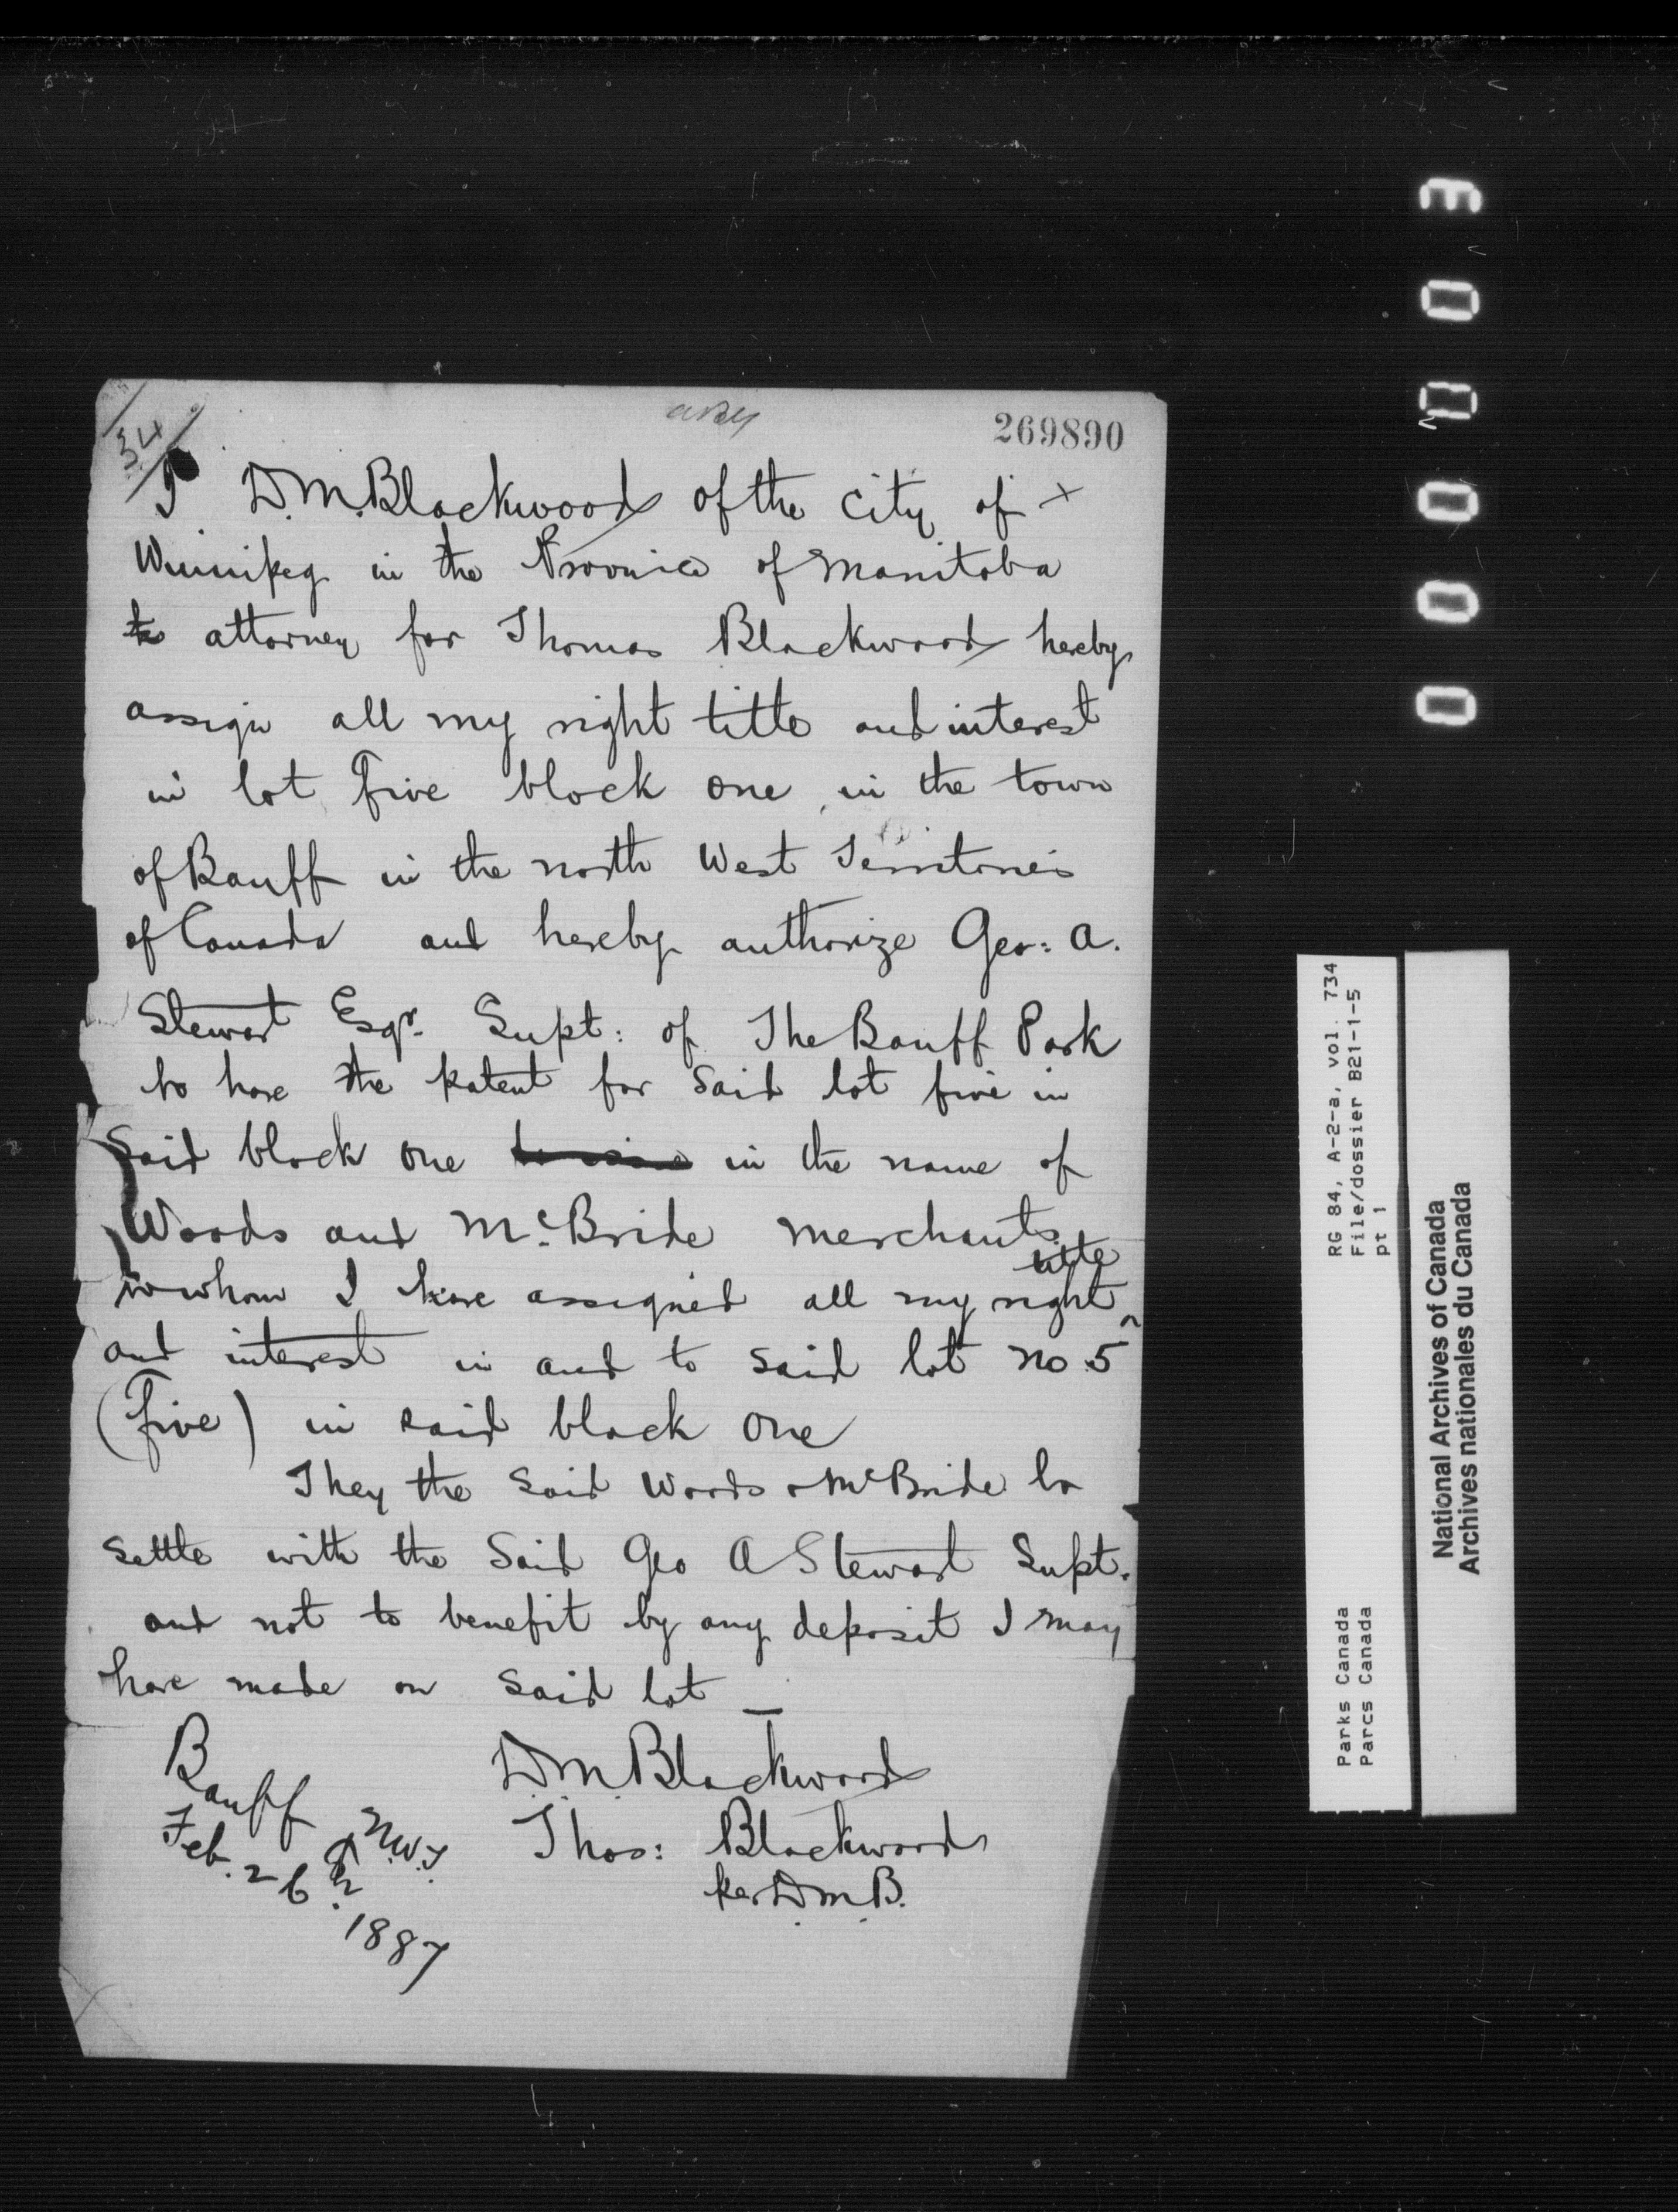 34
269890
I D.M. Blackwood of the City of
Winnipeg in the Province of Manitoba
attorney for Thomas Blackwood hereby
assign all my right title and interest
in lot Five block one in the town
of Banff in the north West Territories
of Canada and hereby authorize Geo: A.
Stewart Esqr. Supt: of The Banff Park
to have the patent for said lot five in
Said block one in the name of
Woods and McBride merchants
title
whom I have assigned all my right
and interest in and to said lot No 5
(Five) in said block one
They the said Woods & McBride to
settle with the Said Geo A Stewart Supt.
and not to benefit by any deposit I may
have made on said lot
D.M. Blackwood
Thos: Blackwood
per D.M.B.
Banff N.W.T.
Feb. 26th 1887
000003
RG 84, A-2-a, vol. 734
File/dossier B21-1-5
pt 1
Parks Canada
Parcs Canada
National Archives of Canada
Archives nationales du Canada